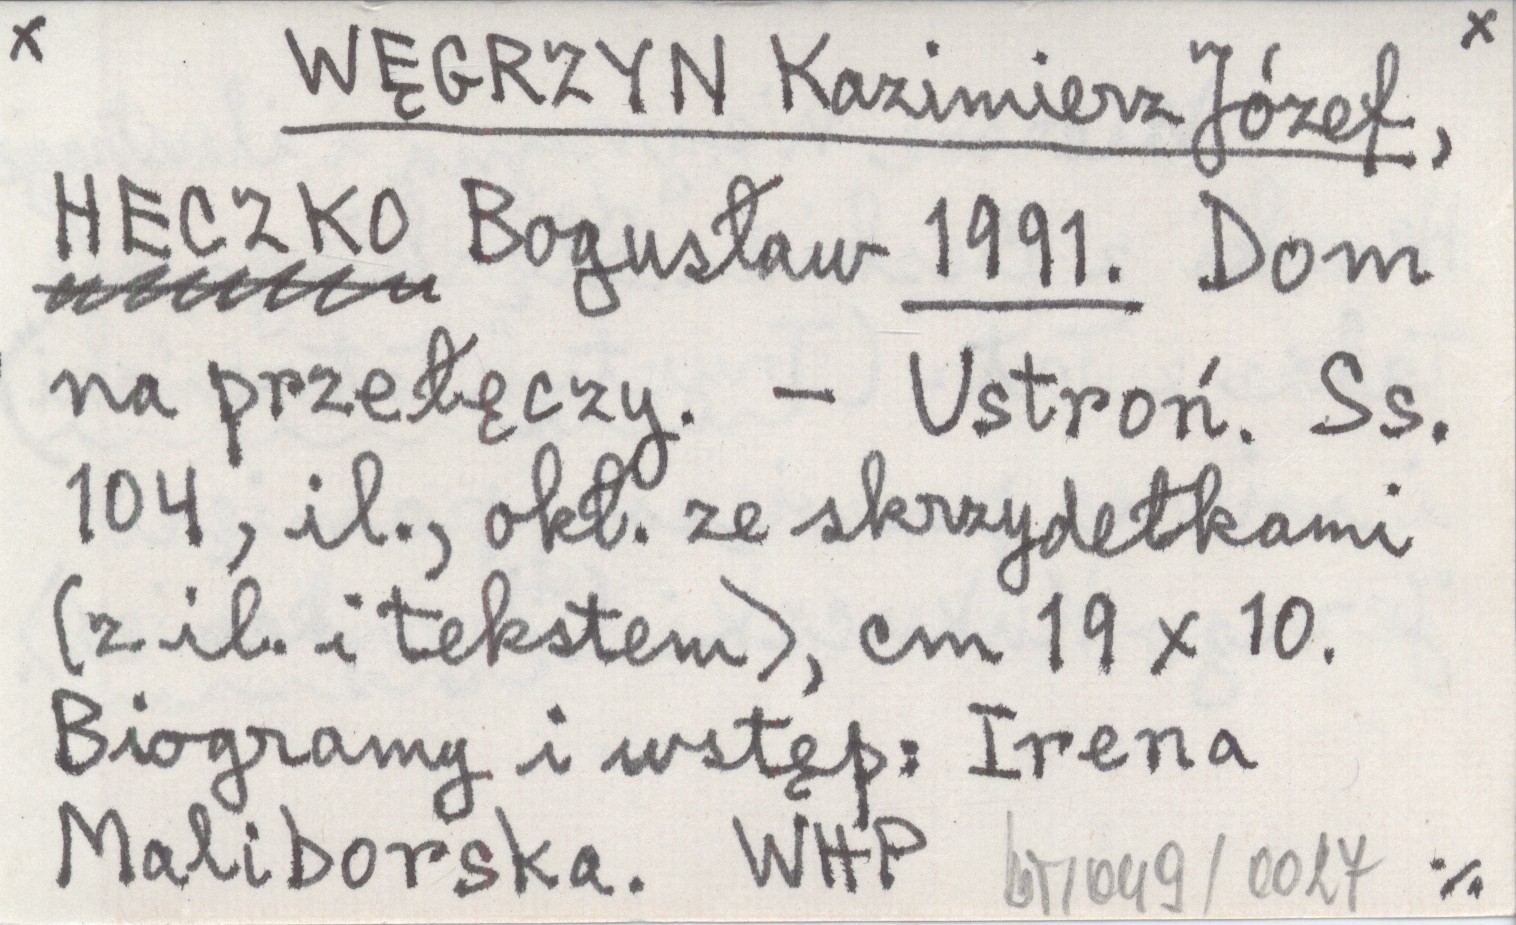 x WĘGRZYN Kazimierz Józef, x
HECZKO Bogusław 1991. Dom
na przełęczy. – Ustroń. Ss.
104, il., okł. ze skrzydełkami
(z il. i tekstem), cm 19 x 10.
Biogramy i wstęp: Irena
Maliborska. WHP br/049/0027 ./.